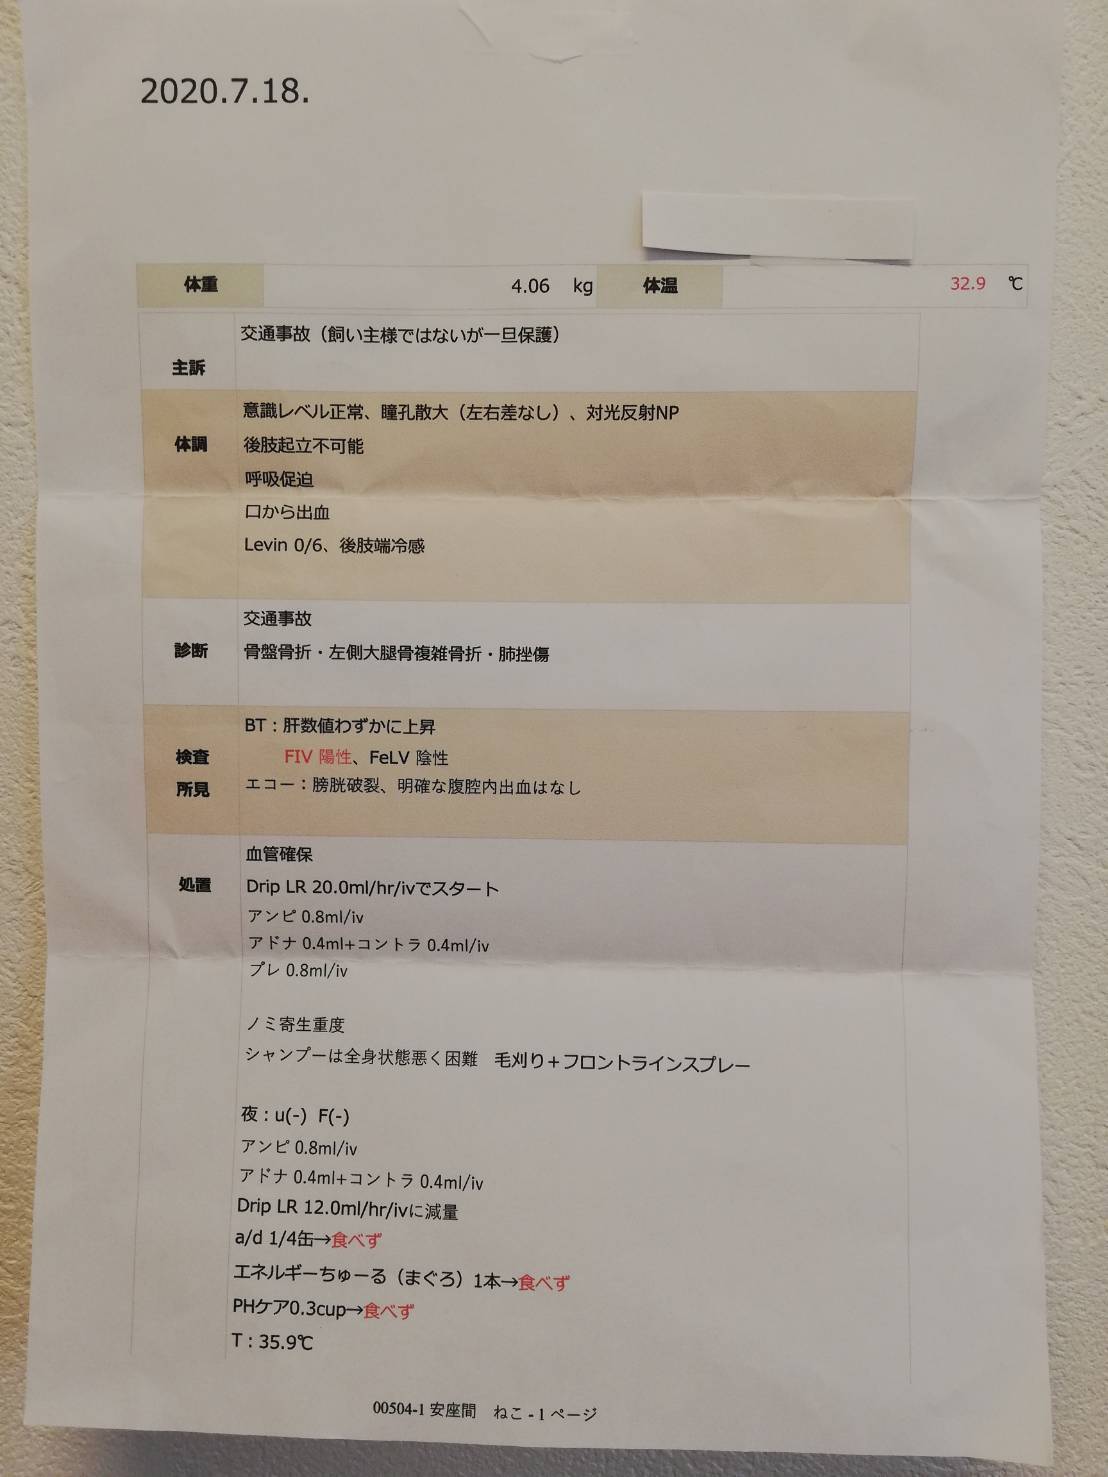 2020.7.18.
体重 4.06 kg 体温 32.9 ℃
主訴
交通事故（飼い主様ではないが一旦保護）
体調
意識レベル正常、瞳孔散大（左右差なし）、対光反射NP
後肢起立不可能
呼吸促迫
口から出血
Levin 0/6、後肢端冷感
診断
交通事故
骨盤骨折・左側大腿骨複雑骨折・肺挫傷
検査
所見
BT：肝数値わずかに上昇
FIV 陽性、FeLV 陰性
エコー：膀胱破裂、明確な腹腔内出血はなし
処置
血管確保
Drip LR 20.0ml/hr/ivでスタート
アンピ 0.8ml/iv
アドナ 0.4ml+コントラ 0.4ml/iv
プレ 0.8ml/iv
ノミ寄生重度
シャンプーは全身状態悪く困難　毛刈り＋フロントラインスプレー
夜：u(-) F(-)
アンピ 0.8ml/iv
アドナ 0.4ml+コントラ 0.4ml/iv
Drip LR 12.0ml/hr/ivに減量
a/d 1/4缶→食べず
エネルギーちゅーる（まぐろ）1本→食べず
PHケア0.3cup→食べず
T：35.9℃
00504-1 安座間　ねこ - 1 ページ